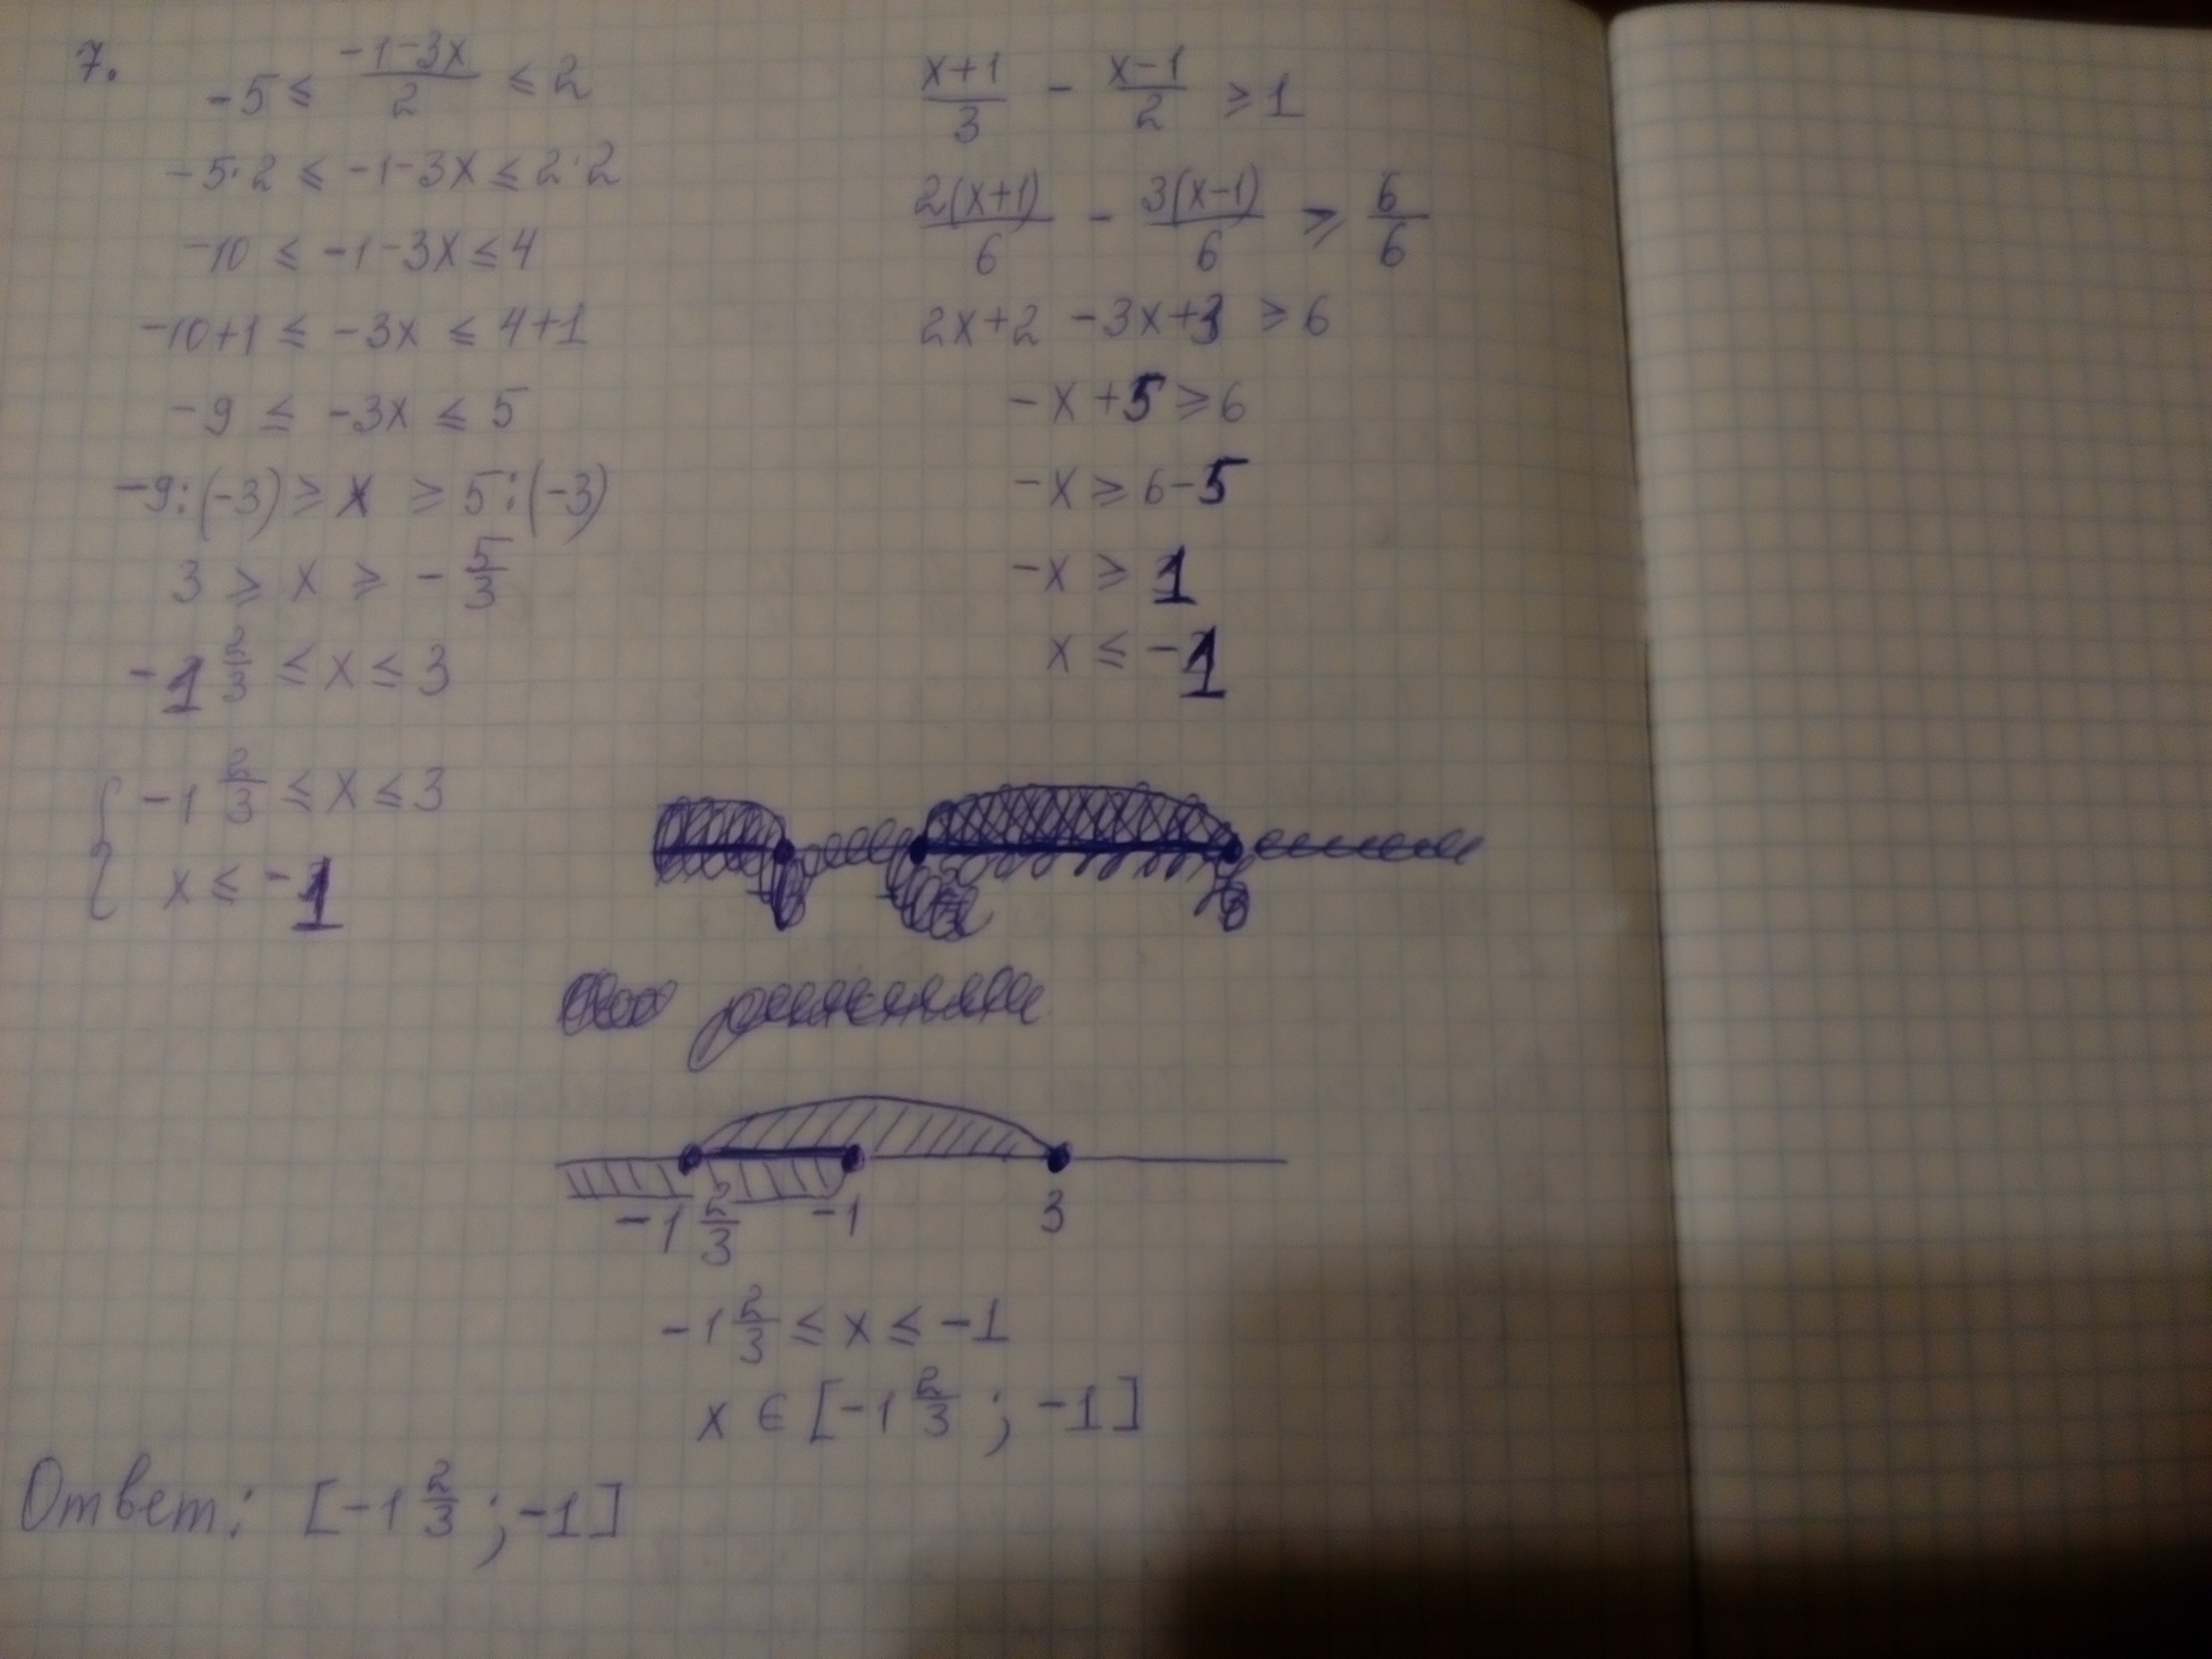 7.
-5 ≤ (-1-3x)/2 ≤ 2
-5·2 ≤ -1-3x ≤ 2·2
-10 ≤ -1-3x ≤ 4
-10+1 ≤ -3x ≤ 4+1
-9 ≤ -3x ≤ 5
-9:(-3) ≥ x ≥ 5:(-3)
3 ≥ x ≥ - 5/3
-1 2/3 ≤ x ≤ 3
{ -1 2/3 ≤ x ≤ 3
x ≤ -1
(x+1)/3 - (x-1)/2 ≥ 1
2(x+1)/6 - 3(x-1)/6 ≥ 6/6
2x+2 -3x+3 ≥ 6
-x+5 ≥ 6
-x ≥ 6-5
-x ≥ 1
x ≤ -1
-1 2/3 -1 3
-1 2/3 ≤ x ≤ -1
x ∈ [-1 2/3 ; -1]
Ответ: [-1 2/3 ; -1]